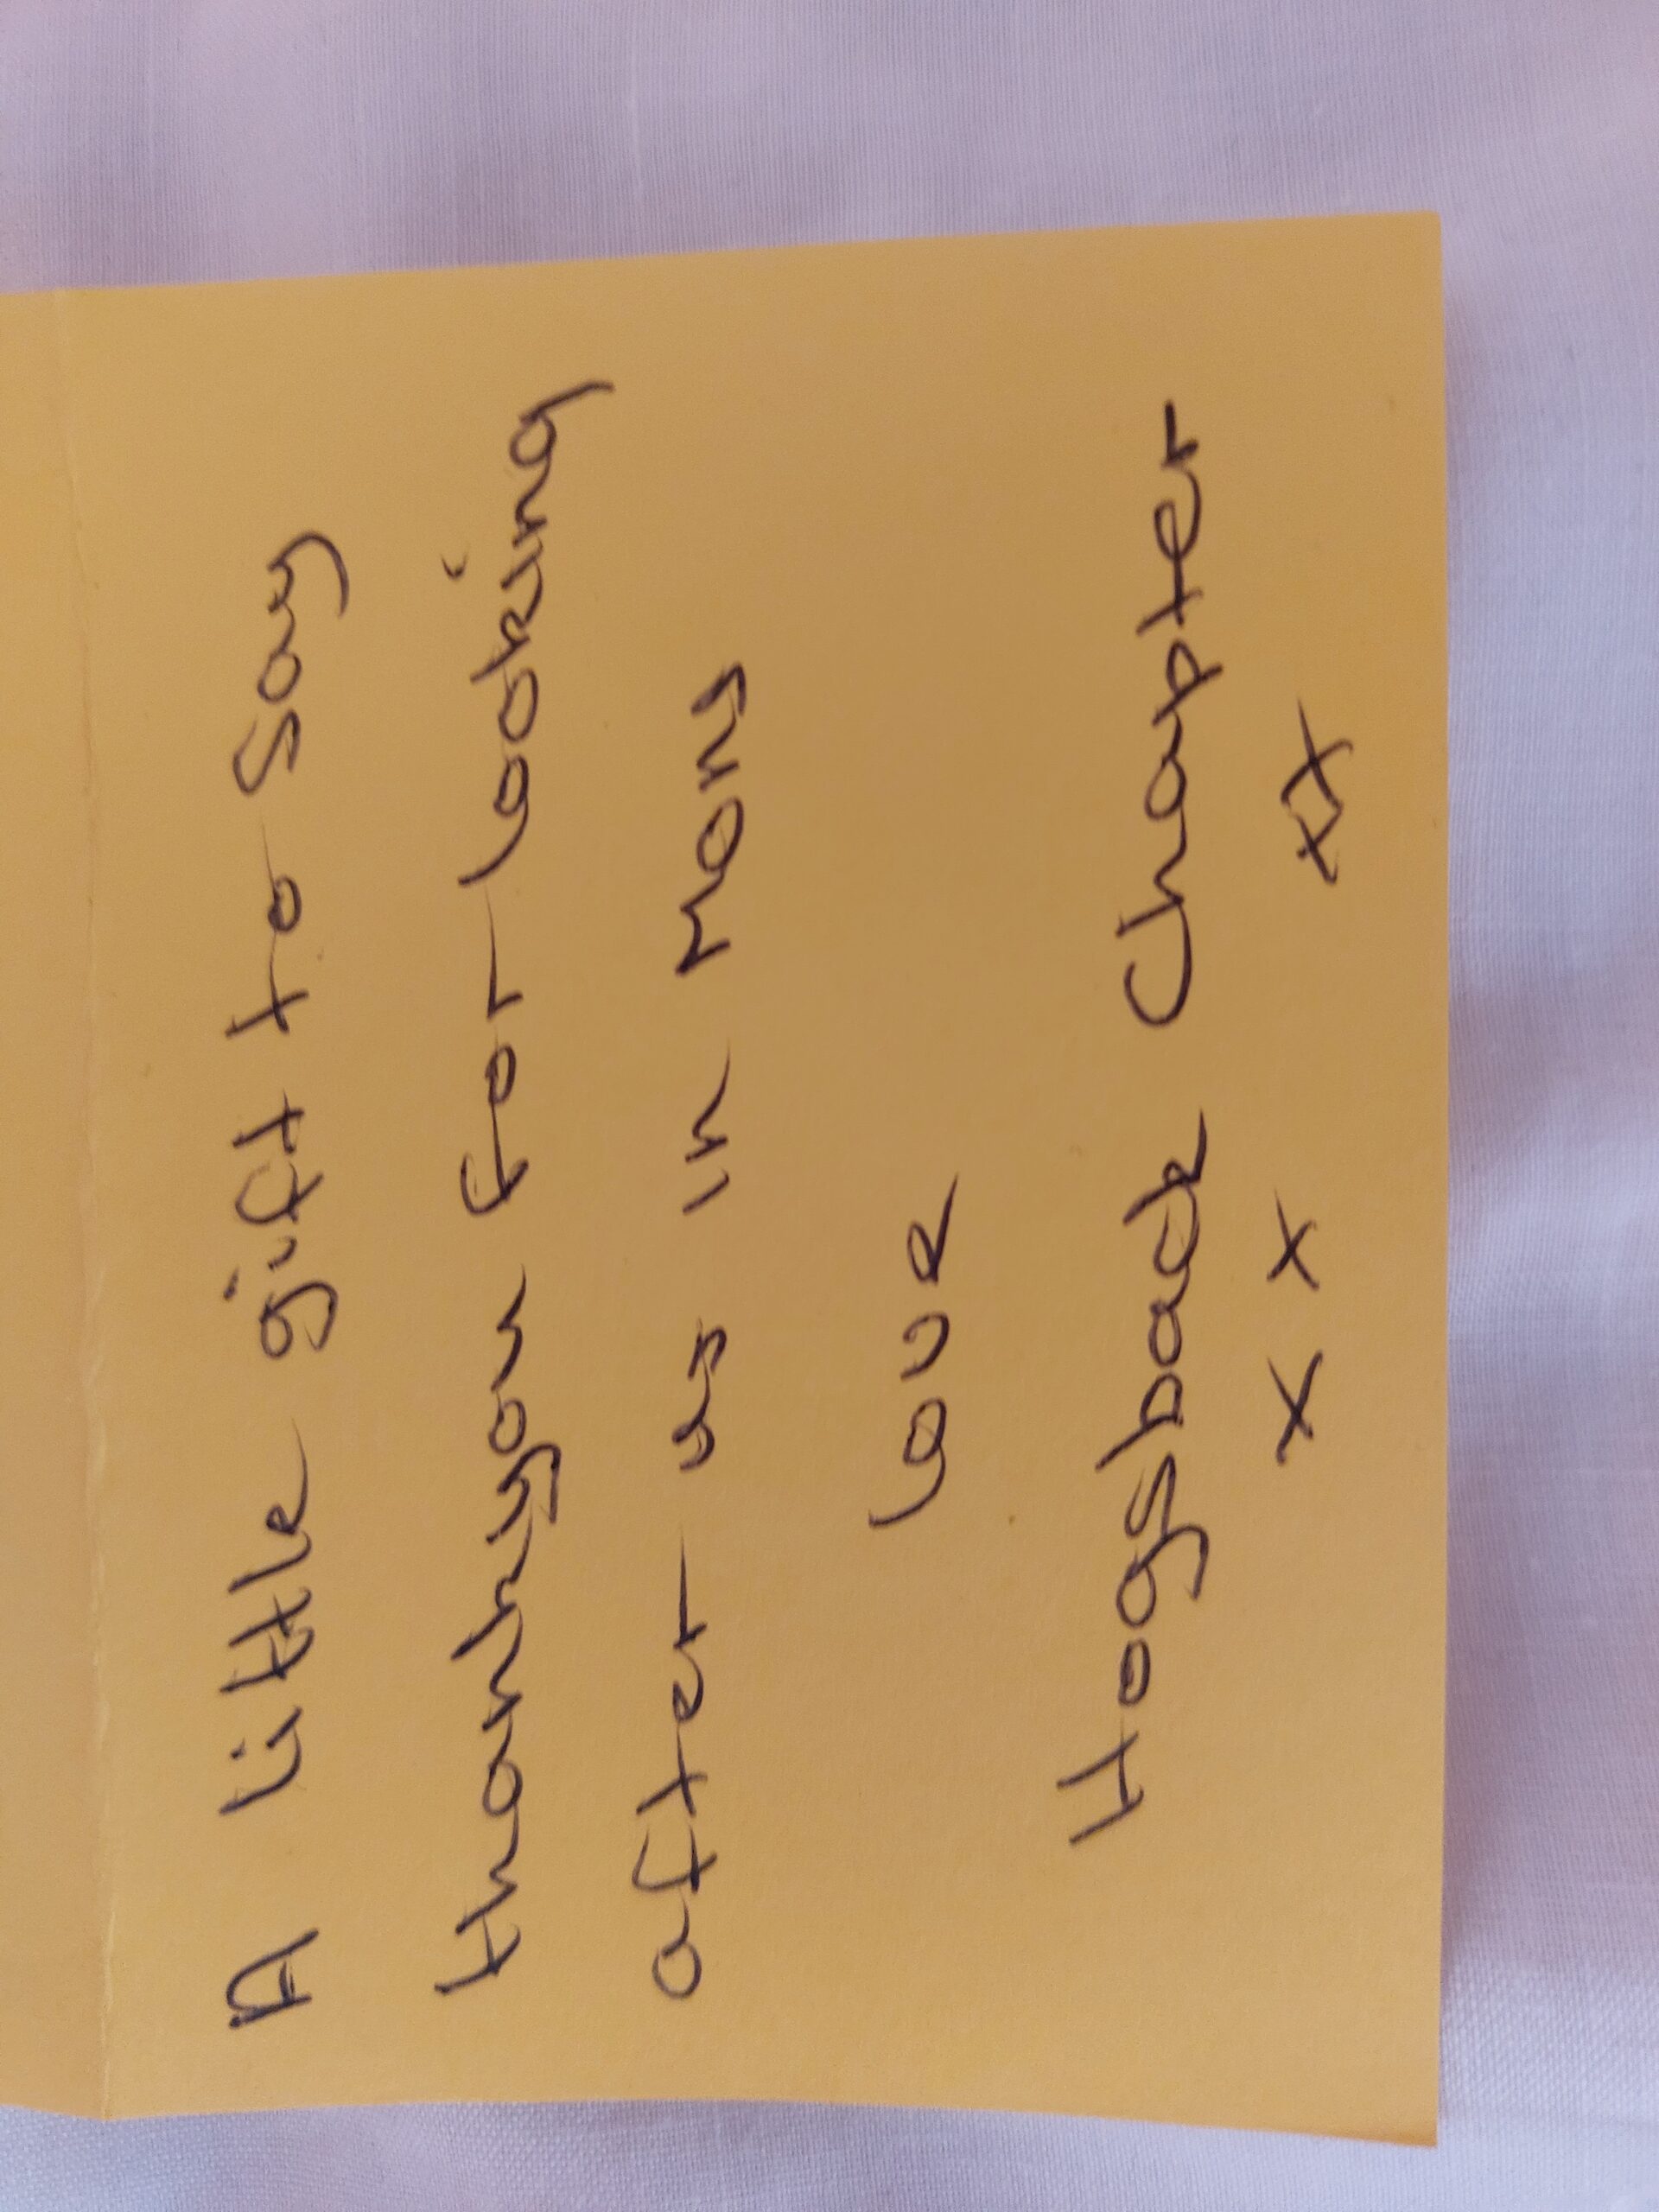 A little gift to say
thankyou for looking
after us in Mons
love
Hogsback Chapter
x x xx